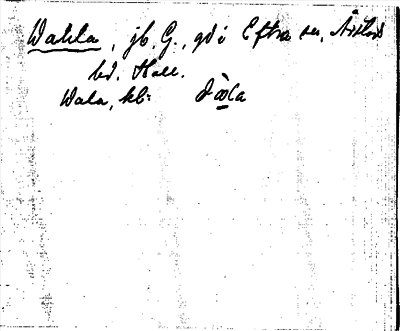 Wahla, jb. G., gd i Eftra sn, Årstads
hd. Hall.
Wala, kb.